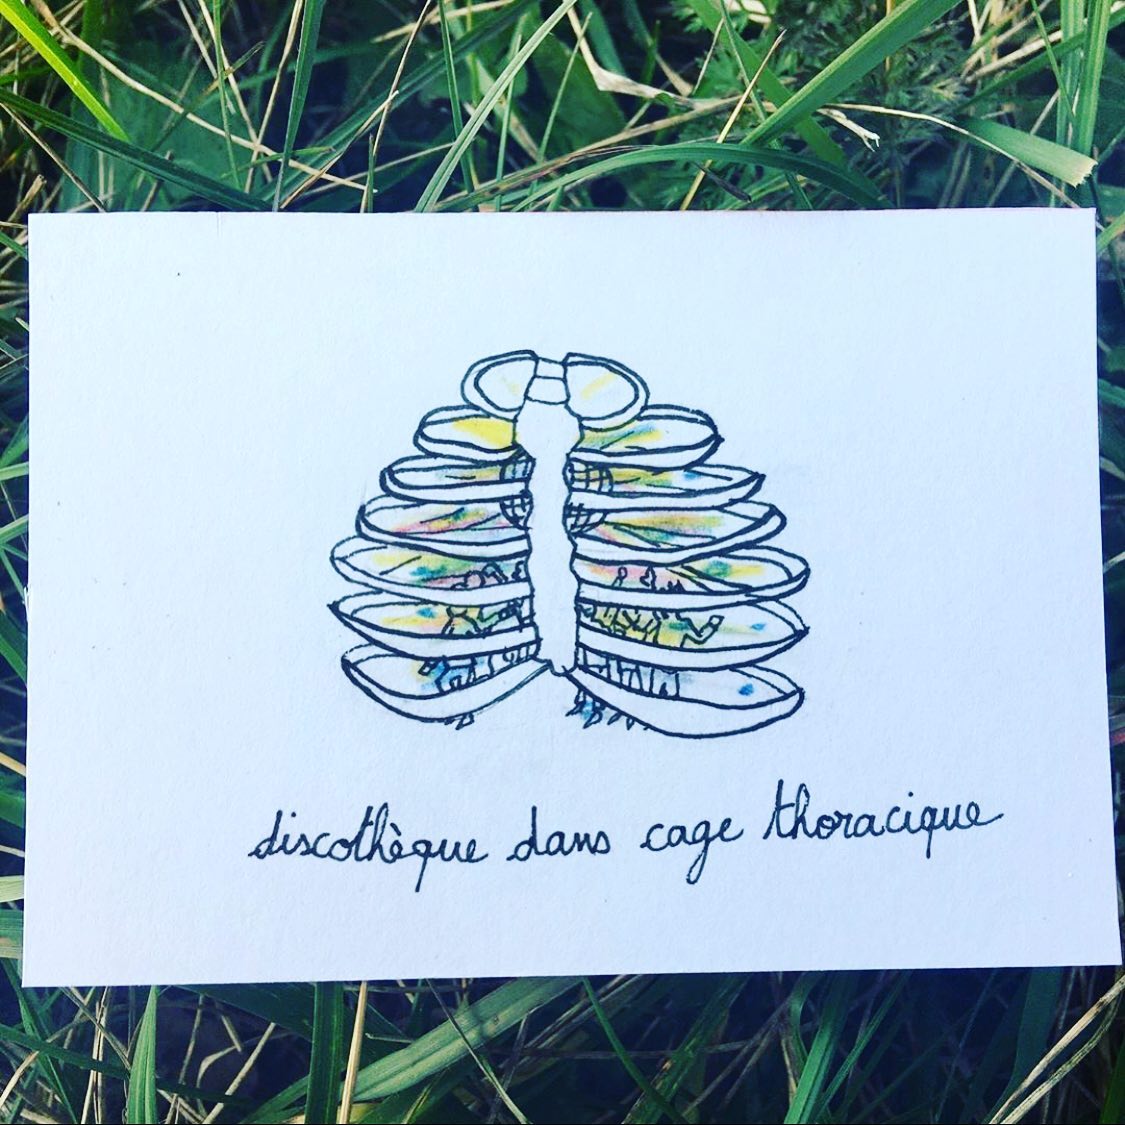 discothèque dans cage thoracique